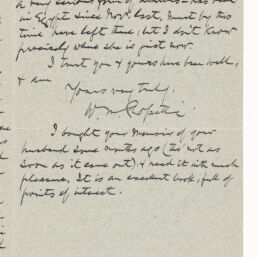 a very serious form of illness has been
in Egypt since Novr. last. Must by this
time have left there, but I don't know
precisely where she is just now.
I trust you & yours have been well,
& am
Yours very truly,
W. M. Rossetti
I bought your Memoir of your
husband some months ago (tho' not as
soon as it came out), & read it with much
pleasure. It is an excellent book, full of
points of interest.